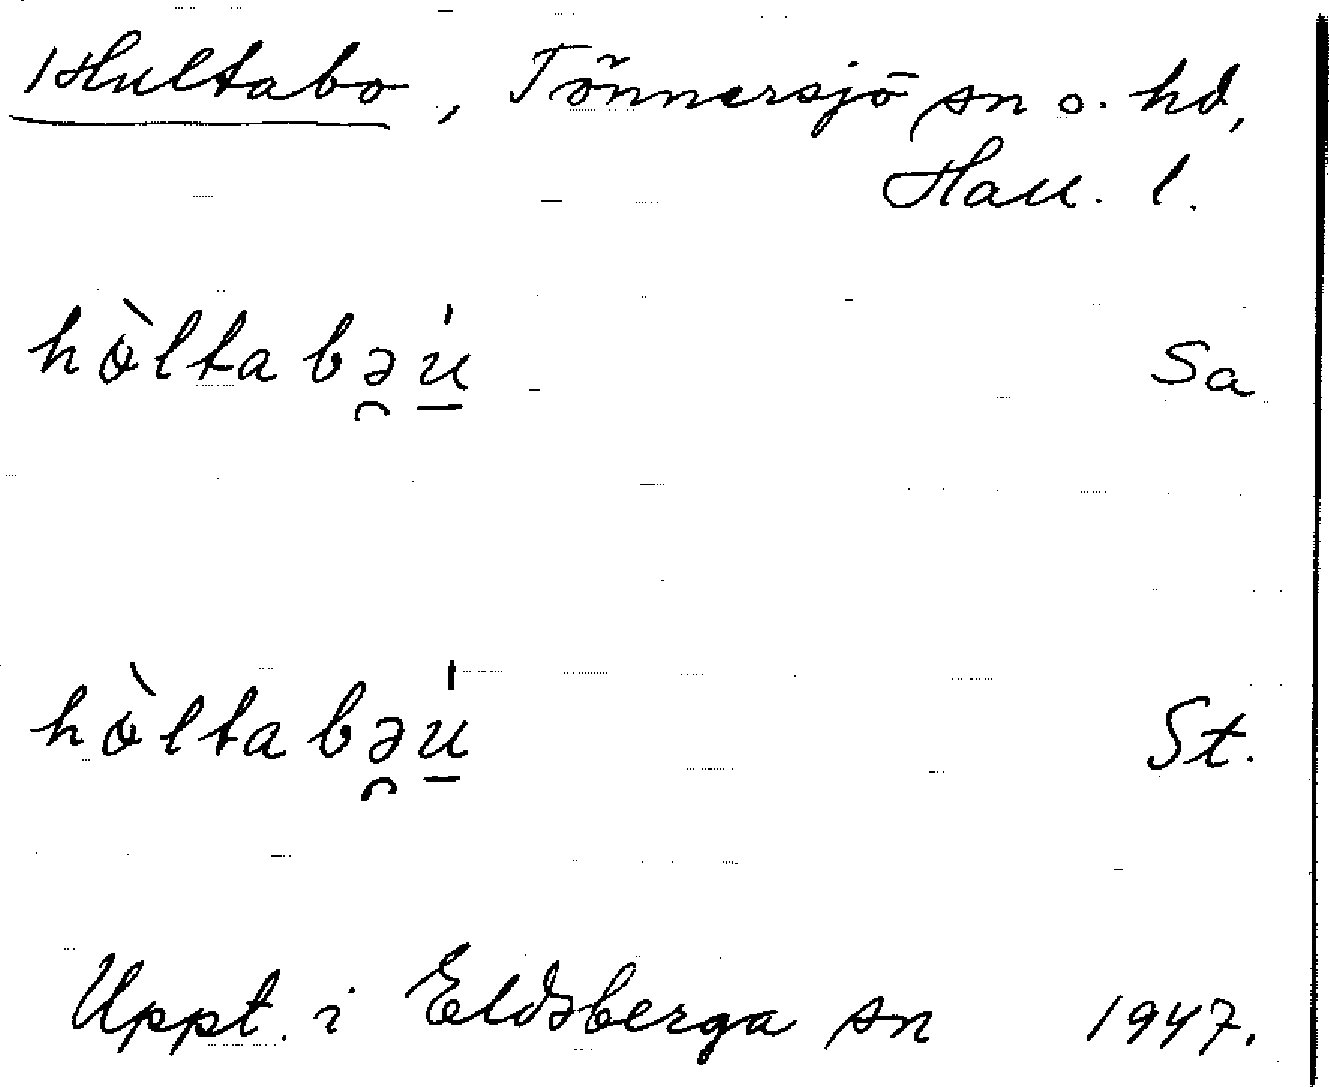 Hultabo, Tönnersjö sn o. hd,
Hall. l.
hòltabə̯ú̲ Sa
hòltabə̯ú̲ St.
Uppt. i Eldsberga sn 1947.